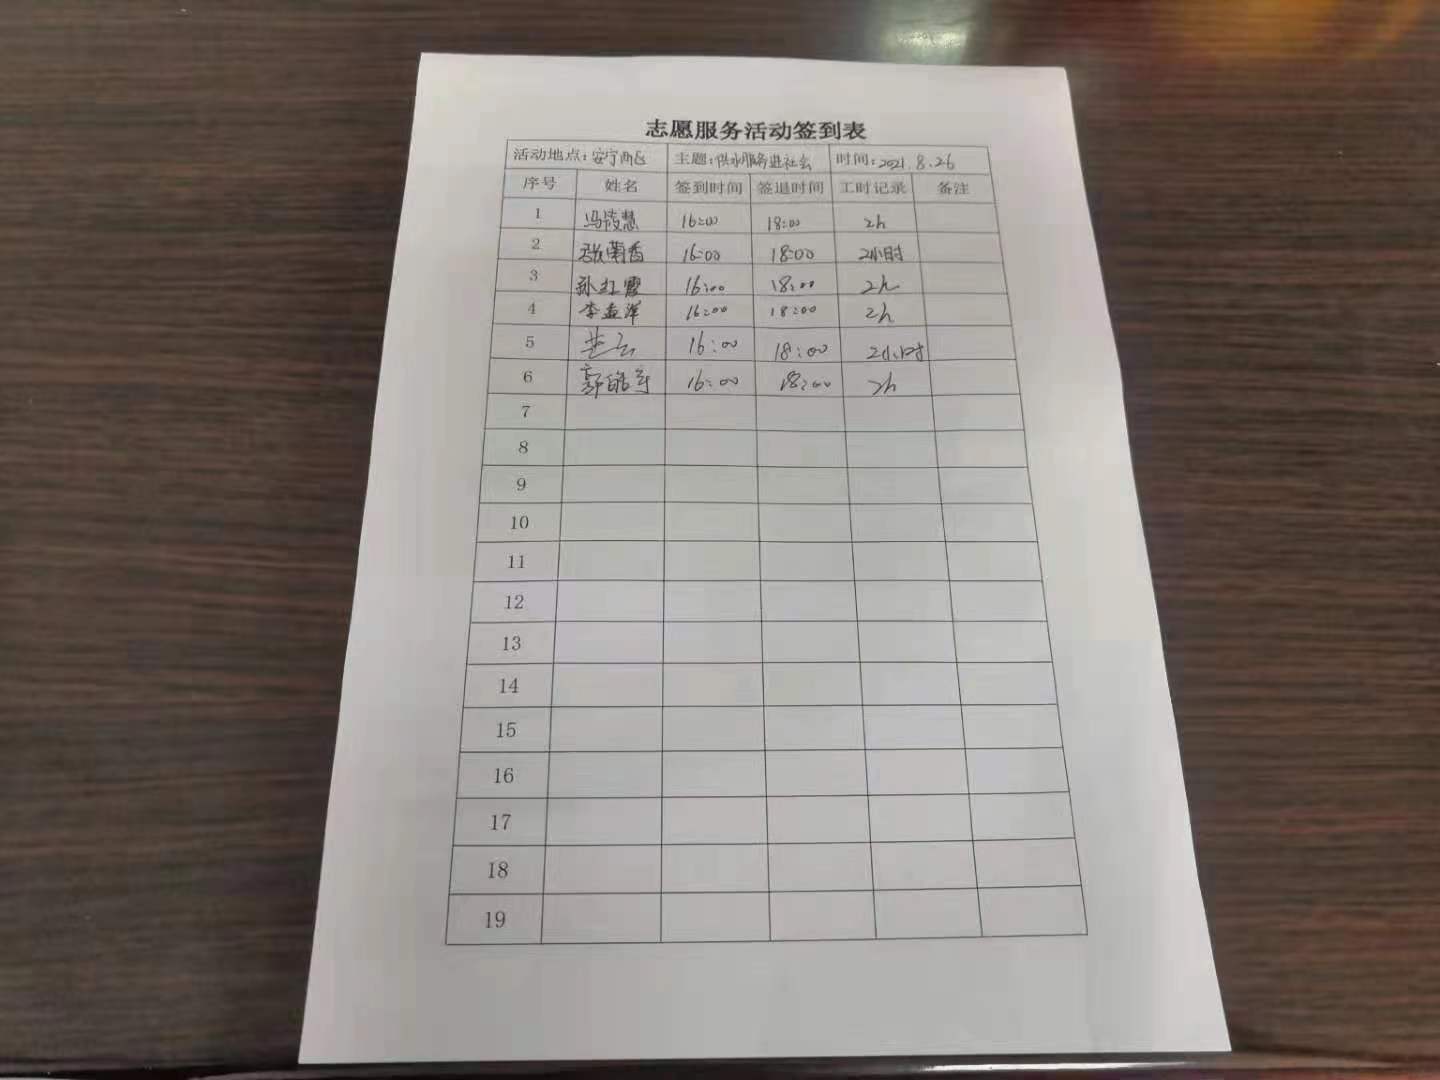 志愿服务活动签到表
活动地点：安宁西区 主题：供水服务进社会 时间：2021.8.26
序号 姓名 签到时间 签退时间 工时记录 备注
1 冯筱慧 16:00 18:00 2h
2 张菊香 16:00 18:00 2小时
3 孙红霞 16:00 18:00 2h
4 李孟洋 16:00 18:00 2h
5 16:00 18:00 2小时
6 郭 16:00 18:00 2h
7
8
9
10
11
12
13
14
15
16
17
18
19